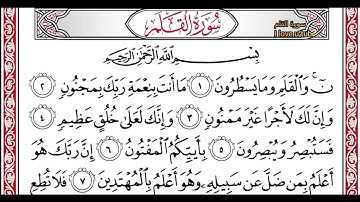 سُورَةُ الْقَلَمِ
سورة القلم
بِسْمِ اللَّهِ الرَّحْمَٰنِ الرَّحِيمِ
نٓ ۚ وَالْقَلَمِ وَمَا يَسْطُرُونَ ﴿١﴾ مَا أَنتَ بِنِعْمَةِ رَبِّكَ بِمَجْنُونٍ ﴿٢﴾
وَإِنَّ لَكَ لَأَجْرًا غَيْرَ مَمْنُونٍ ﴿٣﴾ وَإِنَّكَ لَعَلَىٰ خُلُقٍ عَظِيمٍ ﴿٤﴾
فَسَتُبْصِرُ وَيُبْصِرُونَ ﴿٥﴾ بِأَييِّكُمُ الْمَفْتُونُ ﴿٦﴾ إِنَّ رَبَّكَ هُوَ
أَعْلَمُ بِمَن ضَلَّ عَن سَبِيلِهِ وَهُوَ أَعْلَمُ بِالْمُهْتَدِينَ ﴿٧﴾ فَلَا تُطِعِ